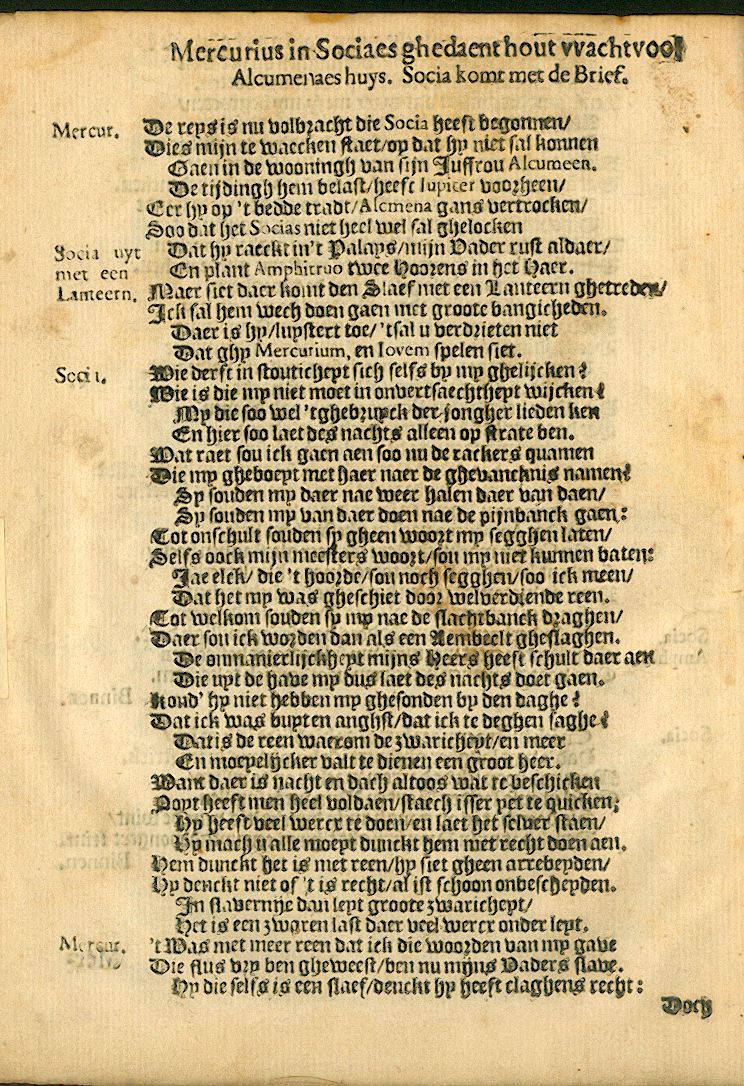 Mercurius in Sociaes ghedaent hout vvacht voor
Alcumenaes huys. Socia komt met de Brief.
Mercur. De reys is nu volbracht die Socia heeft begonnen/
Dies mijn te waecken staet/op dat hy niet sal konnen
Gaen in de wooningh van sijn Juffrou Alcumeen.
De tijdingh hem belast/heeft Iupiter voorheen/
Eer hy op 't bedde tradt/Alcmena gans vertrocken/
Soo dat het Socias niet heel wel sal ghelocken
Socia uyt met een Lanteern. Dat hy raeckt in't Palays/mijn Vader rust aldaer/
En plant Amphitruo twee Hoorens in het Haer.
Maer siet daer komt den Slaef met een Lanteern ghetreden/
Ick sal hem wech doen gaen met groote bangicheden.
Daer is hy/luystert toe/'tsal u verdrieten niet
Dat ghy Mercurium, en Iovem spelen siet.
Socia. Wie derft in stouticheyt sich selfs by my ghelijcken?
Wie is die my niet moet in onvertsaechtheyt wijcken?
My die soo wel 'tghebruyck der jongher lieden ken
En hier soo laet des nachts alleen op strate ben.
Wat raet sou ick gaen aen soo nu de rackers quamen
Die my gheboeyt met haer naer de ghevancknis namen?
Sy souden my daer nae weer halen daer van daen/
Sy souden my van daer doen nae de pijnbanck gaen:
Tot onschult souden sy gheen woort my segghen laten/
Selfs oock mijn meesters woort/sou my niet kunnen baten:
Jae elck/ die 't hoorde/sou noch segghen/soo ick meen/
Dat het my was gheschiet door welverdiende reen.
Tot welkom souden sy my nae de slachtbanck draghen/
Daer sou ick worden dan als een Aembeelt gheslaghen.
De onmanierlijckheyt mijns Heers heeft schult daer aen
Die uyt de have my dus laet des nachts doet gaen.
Kond' hy niet hebben my ghesonden by den daghe?
Dat ick was buyten anghst/dat ick te deghen saghe?
Dat is de reen waerom de zwaricheyt/en meer
En moeyelijcker valt te dienen een groot heer.
Want daer is nacht en dach altoos wat te beschicken
Noyt heeft men heel voldaen/staech isser yet te quicken;
Hy heeft veel werck te doen/en laet het selver staen/
Hy mach u alle moeyt dunckt hem met recht doen aen.
Hem dunckt het is met reen/hy siet gheen arrebeyden/
Hy denckt niet of 't is recht/al ist schoon onbescheyden.
In slavernije dan leyt groote zwaricheyt/
Het is een zwaren last daer veel werck onder leyt.
Mercur. 't Was met meer reen dat ick die woorden van my gave
Die flus vry ben gheweest/ben nu mijns Vaders slave.
Hy die selfs is een slaef/denckt hy heeft claghens recht:
Doch